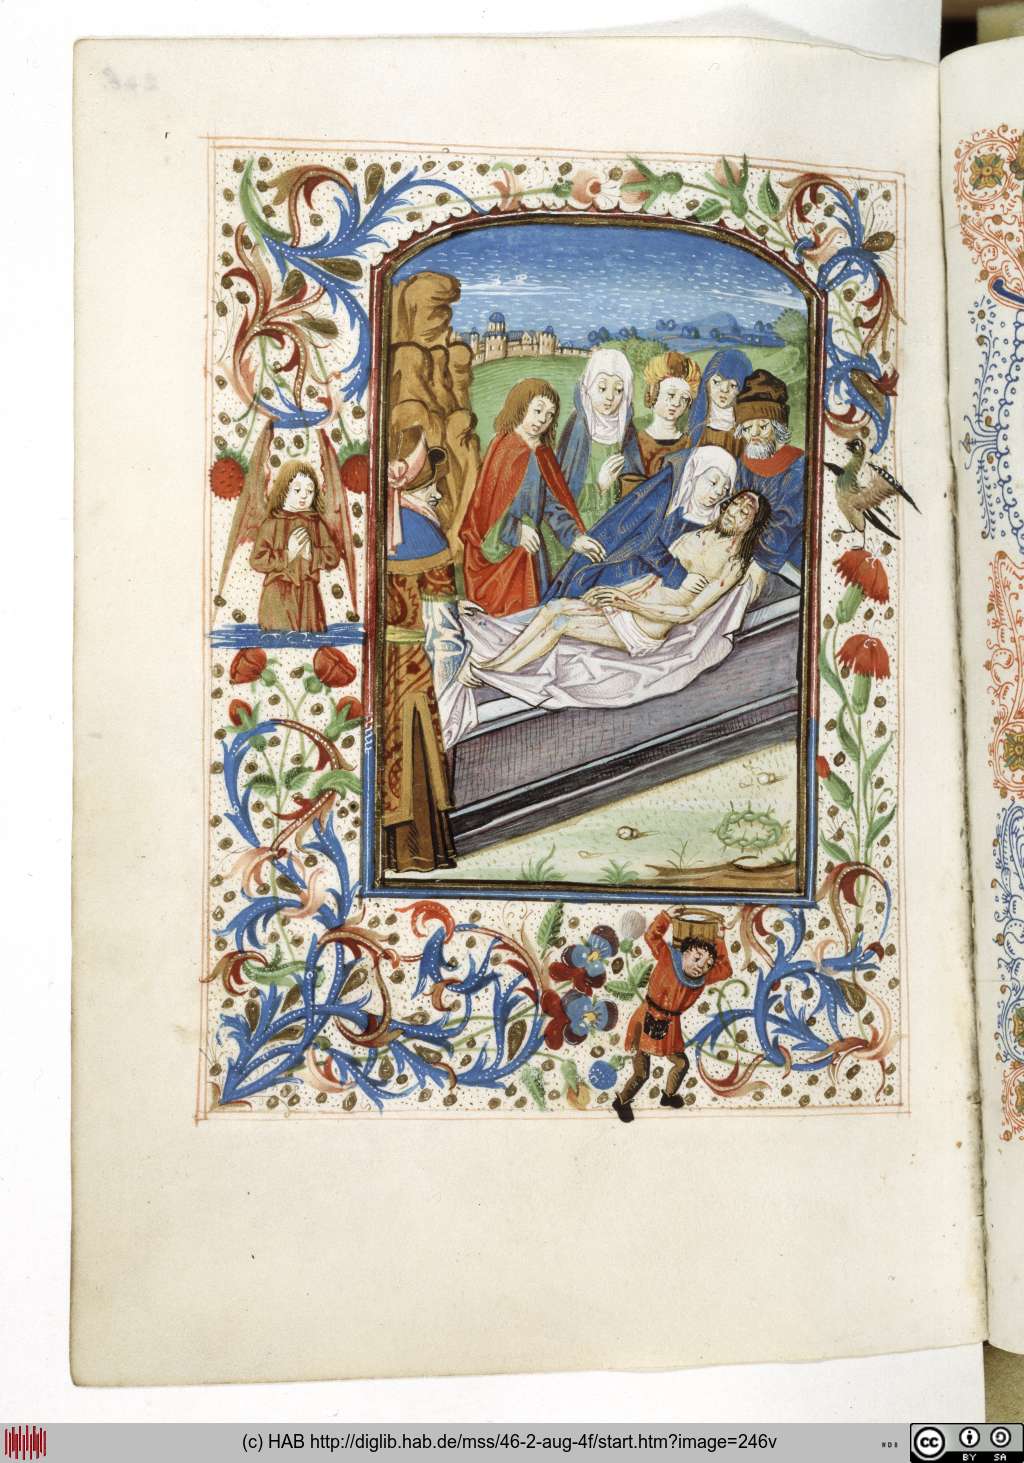 (c) HAB http://diglib.hab.de/mss/46-2-aug-4f/start.htm?image=246v
cc
BY SA